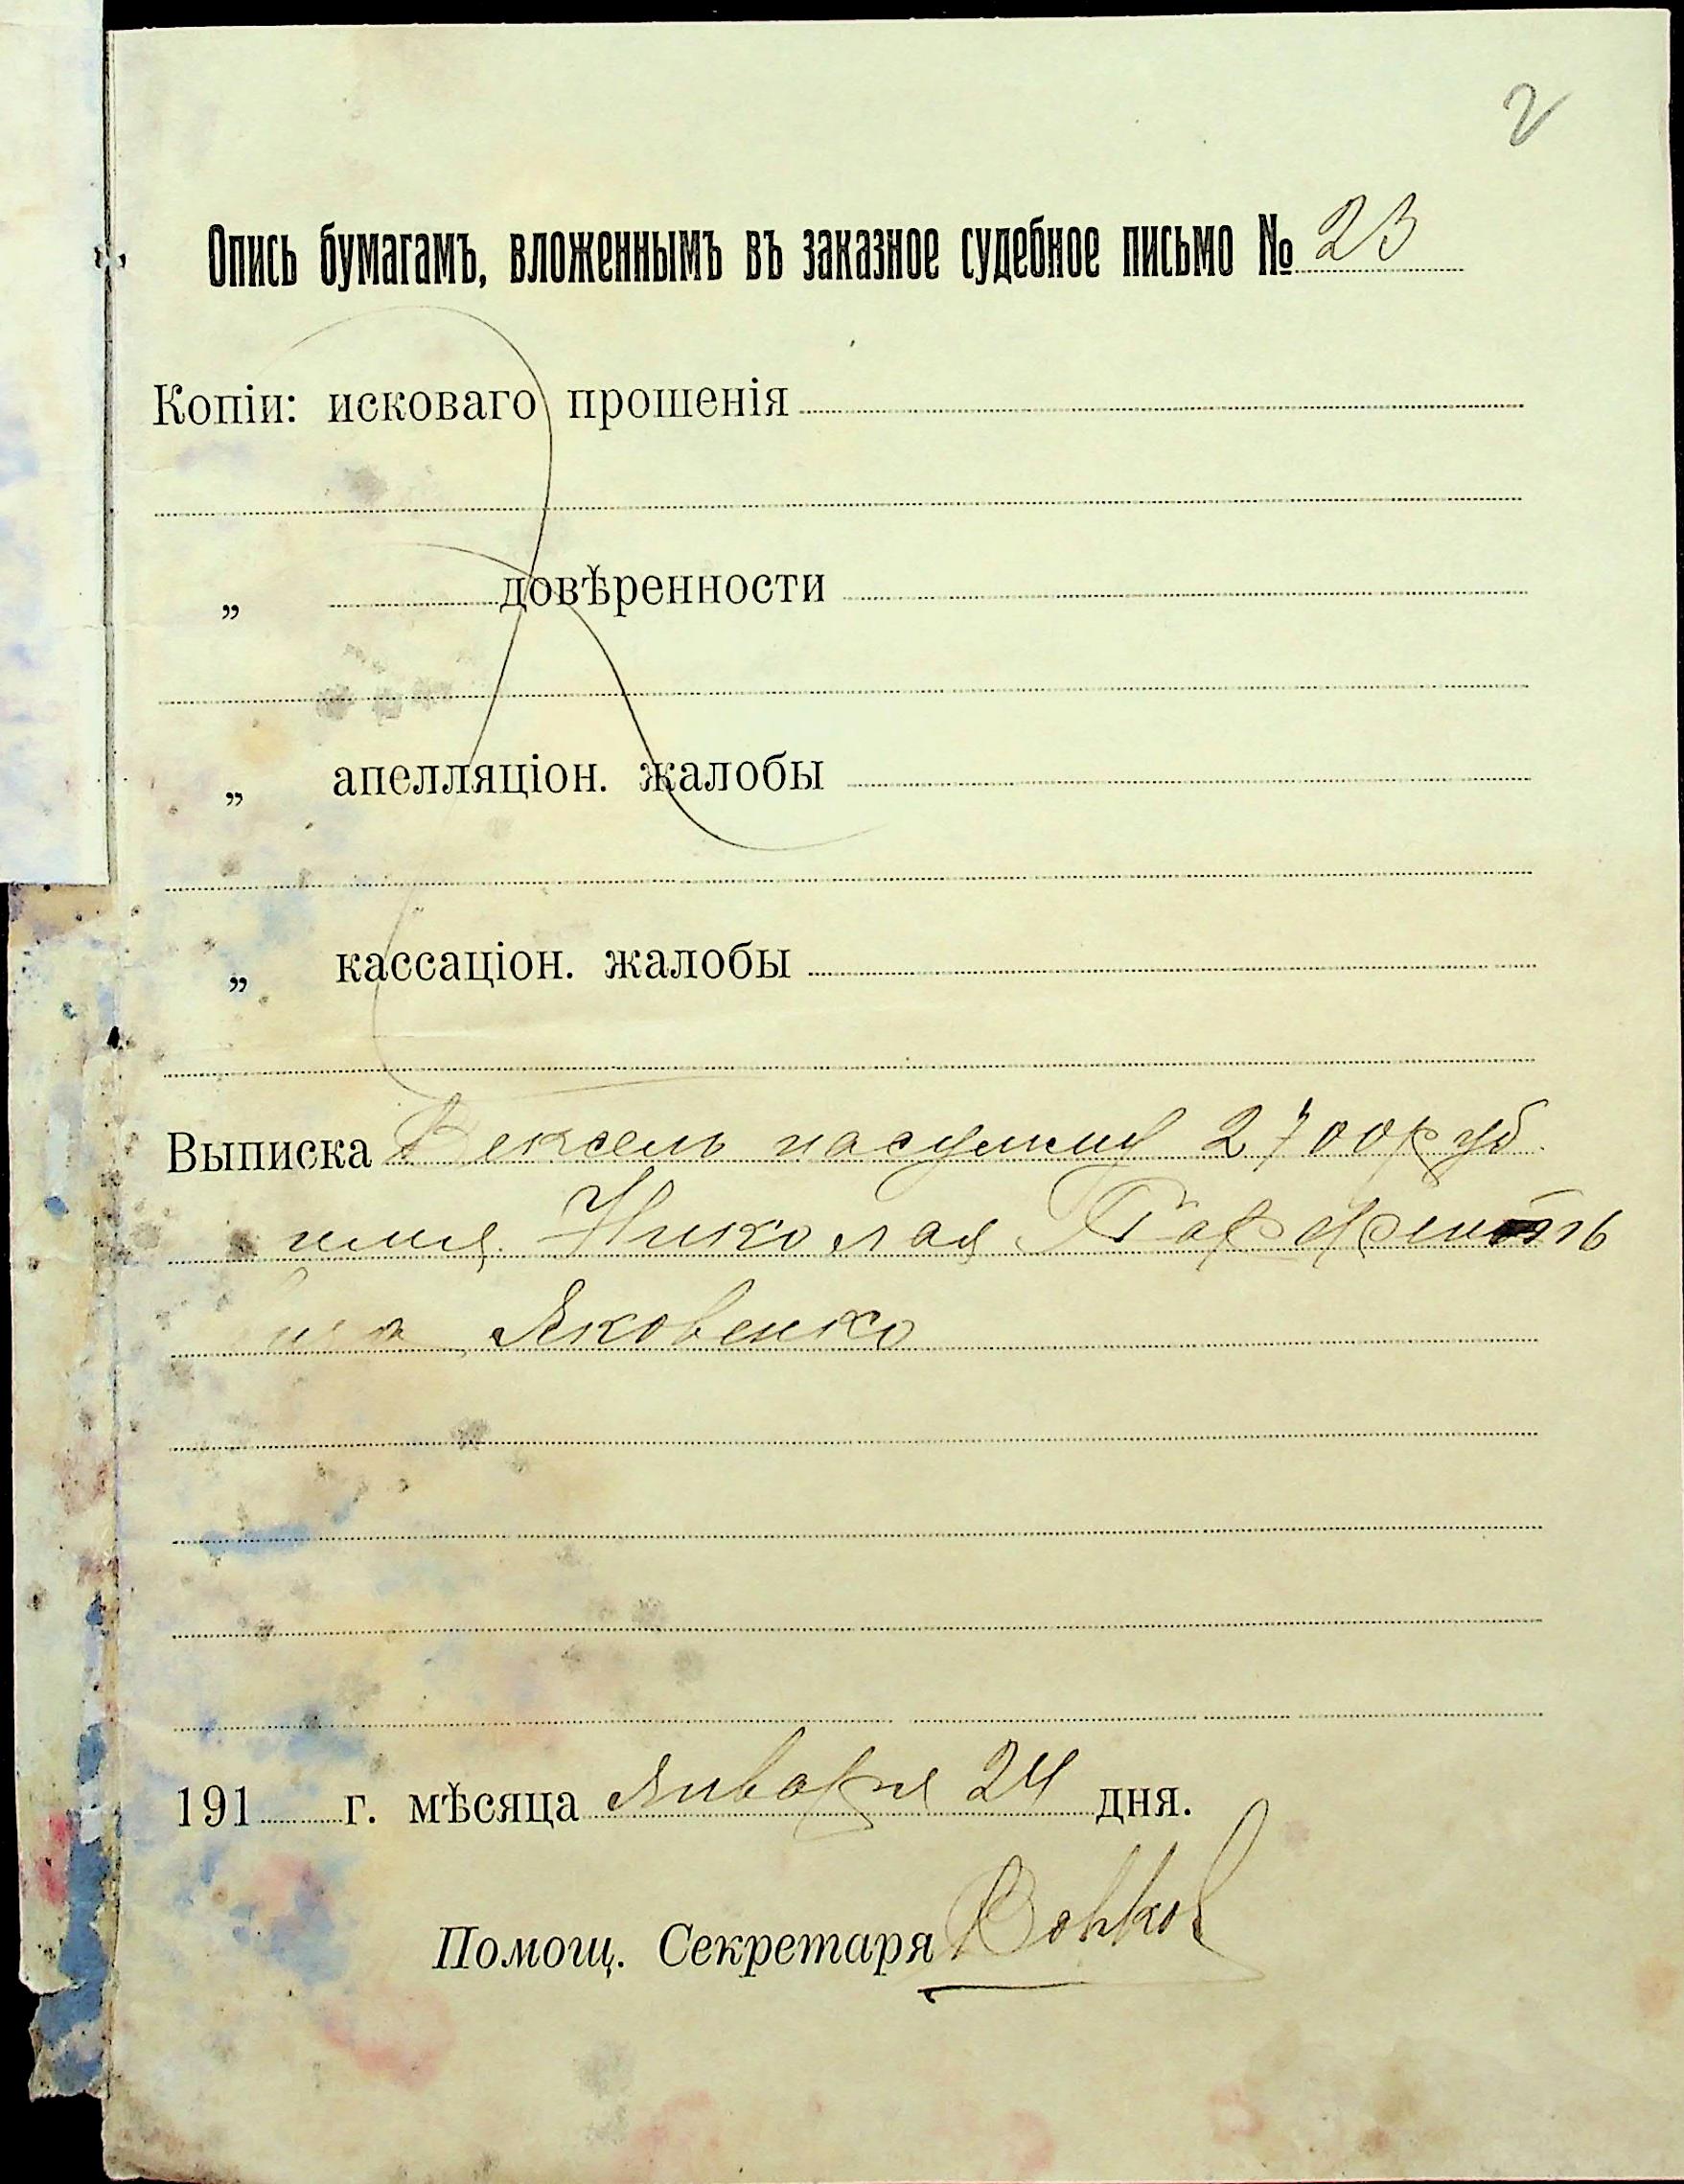 2
Опись бумагамъ, вложеннымъ въ заказное судебное письмо № 23
Копіи: исковаго прошенія
„ довѣренности
„ апелляціон. жалобы
„ кассаціон. жалобы
Выписка Вексель на сумму 2700 руб.
имя Николая
Яковенко
191 г. мѣсяца января 24 дня.
Помощ. Секретаря